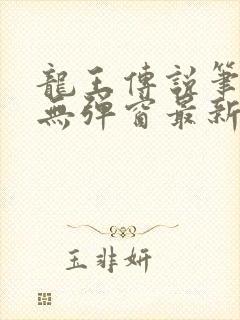 龍王傳說筆
無彈窗最新
玉非妍